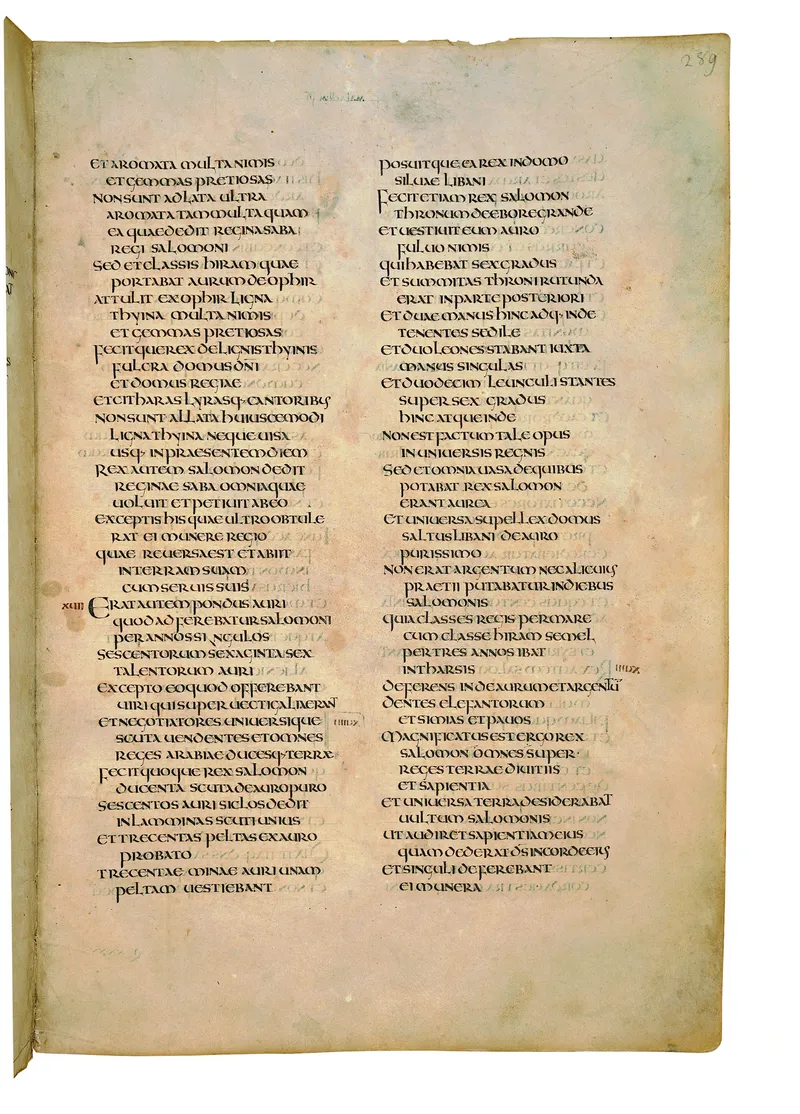 289
ET AROMATA MULTA NIMIS
ET GEMMAS PRETIOSAS
NON SUNT ADLATA ULTRA
AROMATA TAM MULTA QUAM
EA QUAE DEDIT REGINA SABA
REGI SALOMONI
SED ET CLASSIS HIRAM QUAE
PORTABAT AURUM DE OPHIR
ATTULIT EX OPHIR LIGNA
THYINA MULTA NIMIS
ET GEMMAS PRETIOSAS
FECITQUE REX DE LIGNIS THYINIS
FULCRA DOMUS DN̄I
ET DOMUS REGIAE
ET CITHARAS LYRASQ· CANTORIBUS
NON SUNT ALLATA HUIUSCEMODI
LIGNA THYINA NEQUE UISA
USQ· IN PRAESENTEM DIEM
REX AUTEM SALOMON DEDIT
REGINAE SABA OMNIA QUAE
UOLUIT ET PETIUIT AB EO
EXCEPTIS HIS QUAE ULTRO OBTULE
RAT EI MUNERE REGIO
QUAE REUERSA EST ET ABIIT
IN TERRAM SUAM
CUM SERUIS SUIS
XUIII ERAT AUTEM PONDUS AURI
QUOD ADFEREBATUR SALOMONI
PER ANNOS SINGULOS
SESCENTORUM SEXAGINTA SEX
TALENTORUM AURI
EXCEPTO EO QUOD OFFEREBANT
UIRI QUI SUPER UECTIGALIA ERANT
ET NEGOTIATORES UNIUERSIQUE
SCUTA UENDENTES ET OMNES
REGES ARABIAE DUCESQ· TERRAE
FECIT QUOQUE REX SALOMON
DUCENTA SCUTA DE AURO PURO
SESCENTOS AURI SICLOS DEDIT
IN LAMMINAS SCUTI UNIUS
ET TRECENTAS PELTAS EX AURO
PROBATO
TRECENTAE MINAE AURI UNAM
PELTAM UESTIEBANT
POSUITQUE EA REX IN DOMO
SILUAE LIBANI
FECIT ETIAM REX SALOMON
THRONUM DE EBORE GRANDE
ET UESTIUIT EUM AURO
FULUO NIMIS
QUI HABEBAT SEX GRADUS
ET SUMMITAS THRONI RUTUNDA
ERAT IN PARTE POSTERIORI
ET DUAE MANUS HINC ADQ· INDE
TENENTES SEDILE
ET DUO LEONES STABANT IUXTA
MANUS SINGULAS
ET DUODECIM LEUNCULI STANTES
SUPER SEX GRADUS
HINC ATQUE INDE
NON EST FACTUM TALE OPUS
IN UNIUERSIS REGNIS
SED ET OMNIA UASA DE QUIBUS
POTABAT REX SALOMON
ERANT AUREA
ET UNIUERSA SUPELLEX DOMUS
SALTUS LIBANI DE AURO
PURISSIMO
NON ERAT ARGENTUM NEC ALICUIUS
PRAETII PUTABATUR IN DIEBUS
SALOMONIS
QUIA CLASSES REGIS PER MARE
CUM CLASSE HIRAM SEMEL
PER TRES ANNOS IBAT
IN THARSIS
DEFERENS INDE AURUM ET ARGENTŪ
DENTES ELEFANTORUM
ET SIMIAS ET PAUOS
MAGNIFICATUS EST ERGO REX
SALOMON OMNES SUPER
REGES TERRAE DIUITIIS
ET SAPIENTIA
ET UNIUERSA TERRA DESIDERABAT
UULTUM SALOMONIS
UT AUDIRET SAPIENTIAM EIUS
QUAM DEDERAT DS̄ IN CORDE EIUS
ET SINGULI DEFEREBANT
EI MUNERA